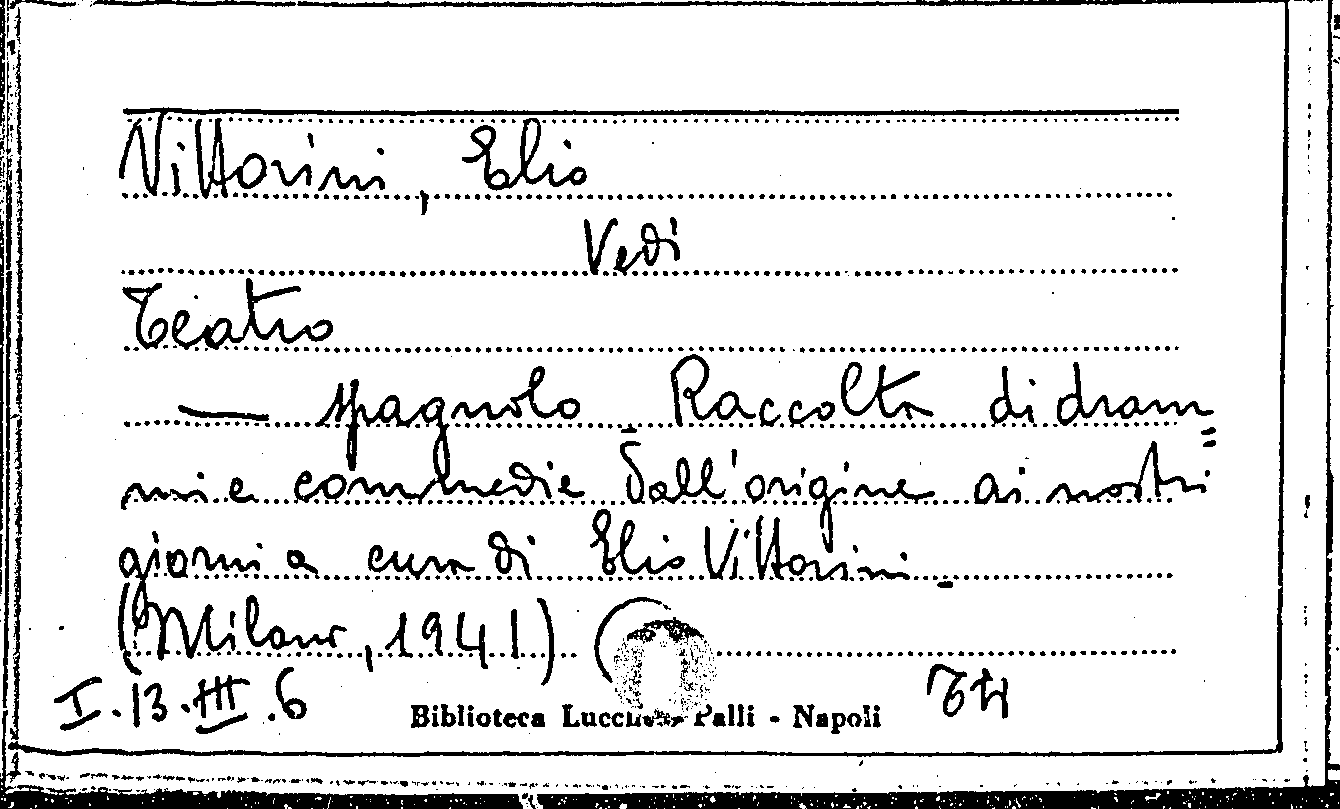 Vittorini, Elio
Vedi
Teatro
— spagnolo. Raccolta di dram=
mi e commedie dall'origine ai nostri
giorni a cura di Elio Vittorini.
(Milano, 1941)
I.13.III.6
Biblioteca Lucchesi Palli - Napoli